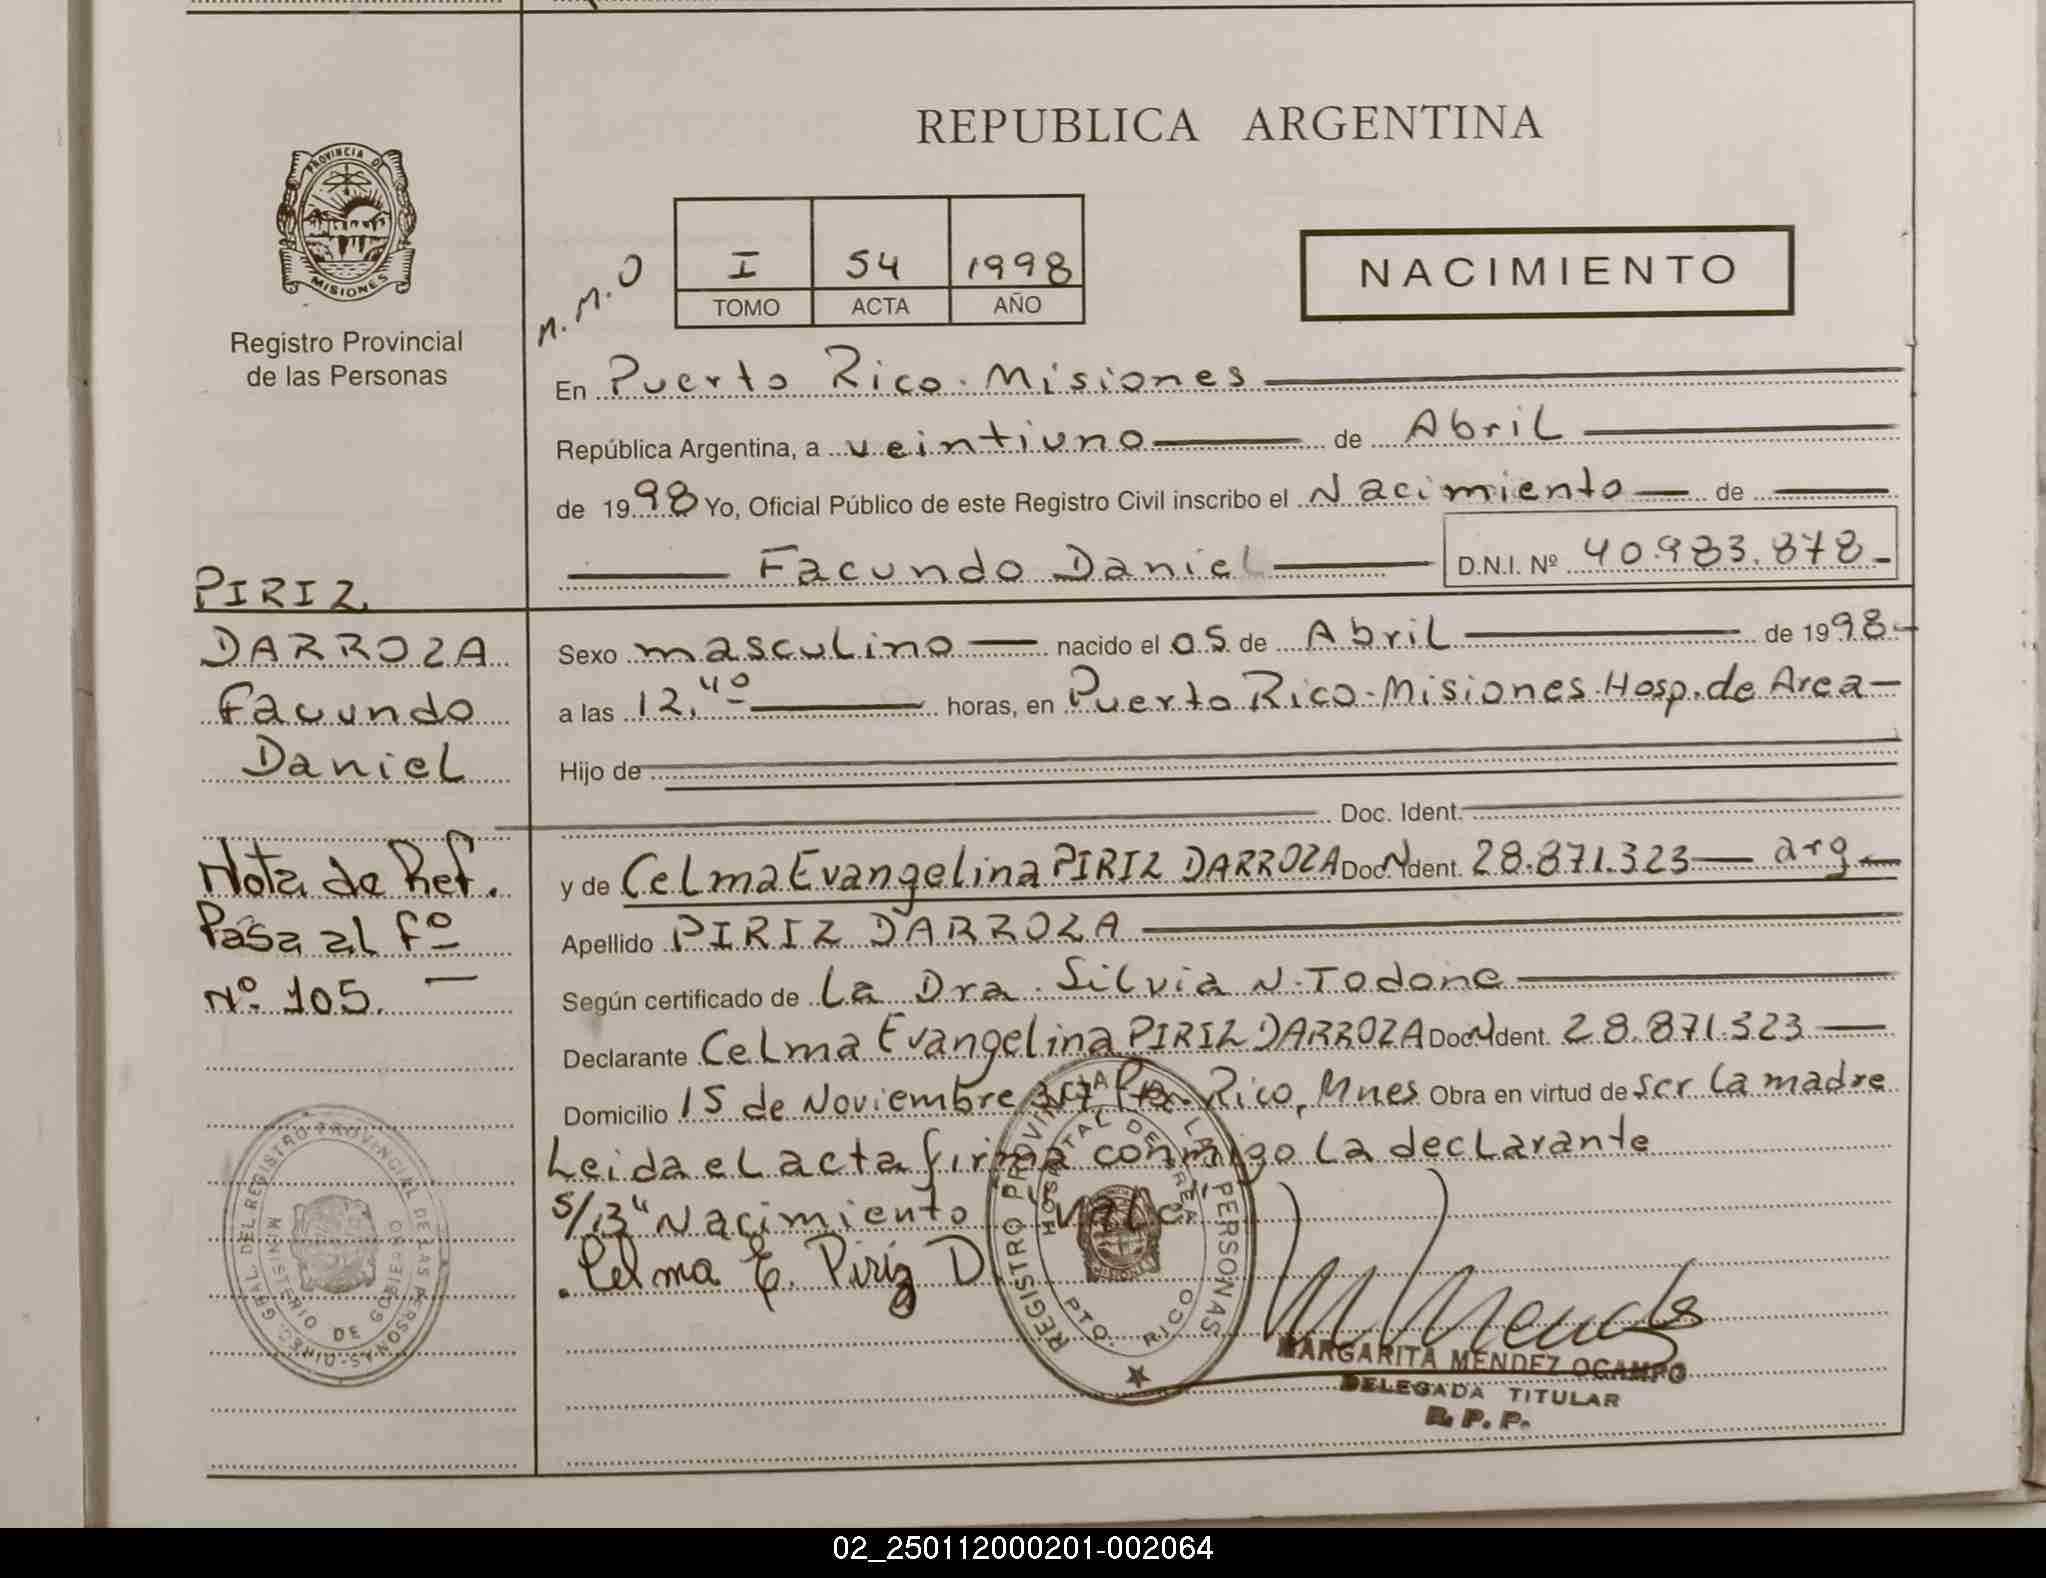 REPUBLICA ARGENTINA
PROVINCIA DE
MISIONES
Registro Provincial
de las Personas
I 54 1998
TOMO ACTA AÑO
NACIMIENTO
En Puerto Rico. Misiones
República Argentina, a veintiuno de Abril
de 1998 Yo, Oficial Público de este Registro Civil inscribo el Nacimiento de
Facundo Daniel D.N.I. Nº 40.983.878
PIRIZ
DARROZA
Facundo
Daniel
Nota de Ref.
Pasa al Fº
Nº 105.
Sexo masculino nacido el 05 de Abril de 1998
a las 12,40 horas, en Puerto Rico-Misiones-Hosp. de Area
Hijo de
Doc. Ident.
y de Celma Evangelina PIRIZ DARROZA Doc. Ident. 28.871.323 arg.
Apellido PIRIZ DARROZA
Según certificado de La Dra. Silvia N. Todone
Declarante Celma Evangelina PIRIZ DARROZA Doc. Ident. 28.871.323
Domicilio 15 de Noviembre Pto. Rico, Mnes Obra en virtud de ser la madre
Leida el acta firma conmigo la declarante
"Nacimiento" Vale
Celma E. Piriz D.
REGISTRO PROVINCIAL DE LAS PERSONAS
HOSPITAL DE AREA
PTO. RICO
MARGARITA MENDEZ OCAMPO
DELEGADA TITULAR
R. P. P.
DIREC. GRAL. DEL REGISTRO PROVINCIAL DE LAS PERSONAS
MINISTERIO DE GOBIERNO
02_250112000201-002064